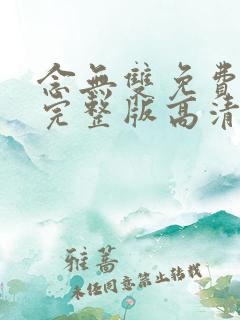 念無雙免費
完整版高清
雅茖
未任同意禁止转载